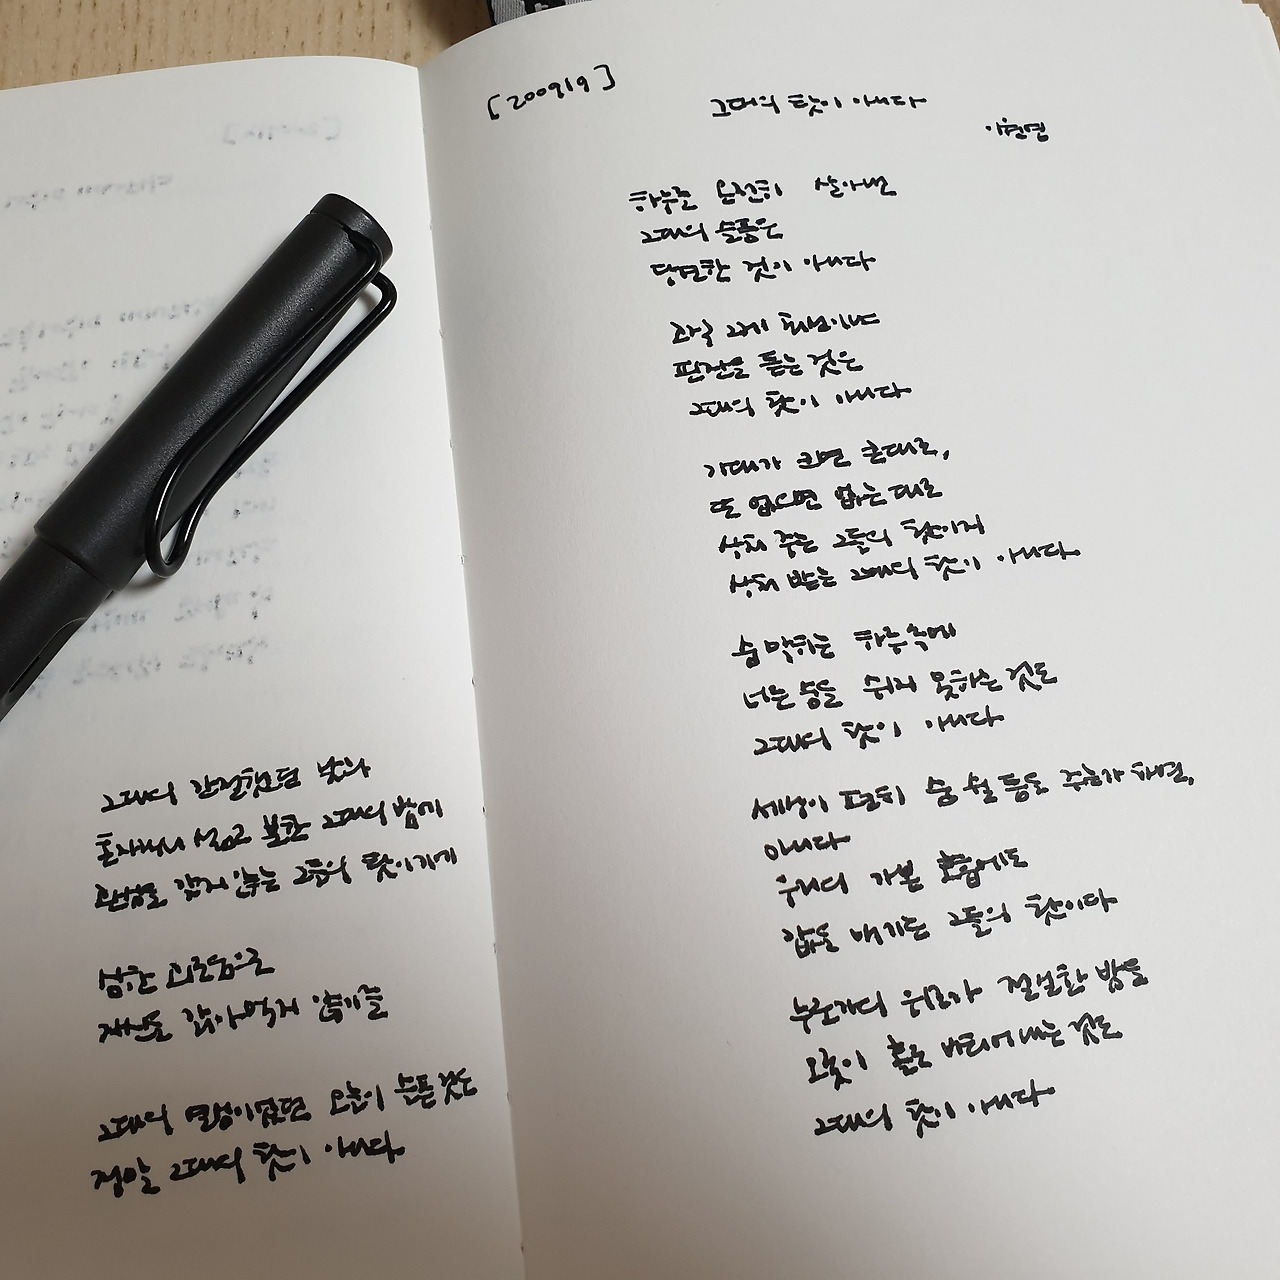 [200919]
그대의 탓이 아니다
하루를 온전히 살아낸
그대의 슬픔은
당연한 것이 아니다
고작 그게 최선이냐며
핀잔을 듣는 것은
그대의 탓이 아니다
기대가 크면 큰대로,
또 없으면 없는대로
상처 주는 그들의 탓이지
상처 받는 그대의 탓이 아니다
숨 막히는 하루 속에
숨을 쉬지 못하는 것도
그대의 탓이 아니다
세상이 편히 숨 쉴 틈을 주는가 하면,
아니다
우리의 가쁜 호흡에도
값을 매기는 그들의 탓이다
누군가의 위로가 절실한 밤을
오롯이 홀로 버티어내는 것도
그대의 탓이 아니다
그대의 간절했던 낮과
그대의 밤에
관심을 갖지 않는 그들의 탓이기에
심한 괴로움으로
자신을 갉아먹지 않기를
그대의 열정이었던 오늘이 슬픈 것은
정말 그대의 탓이 아니다